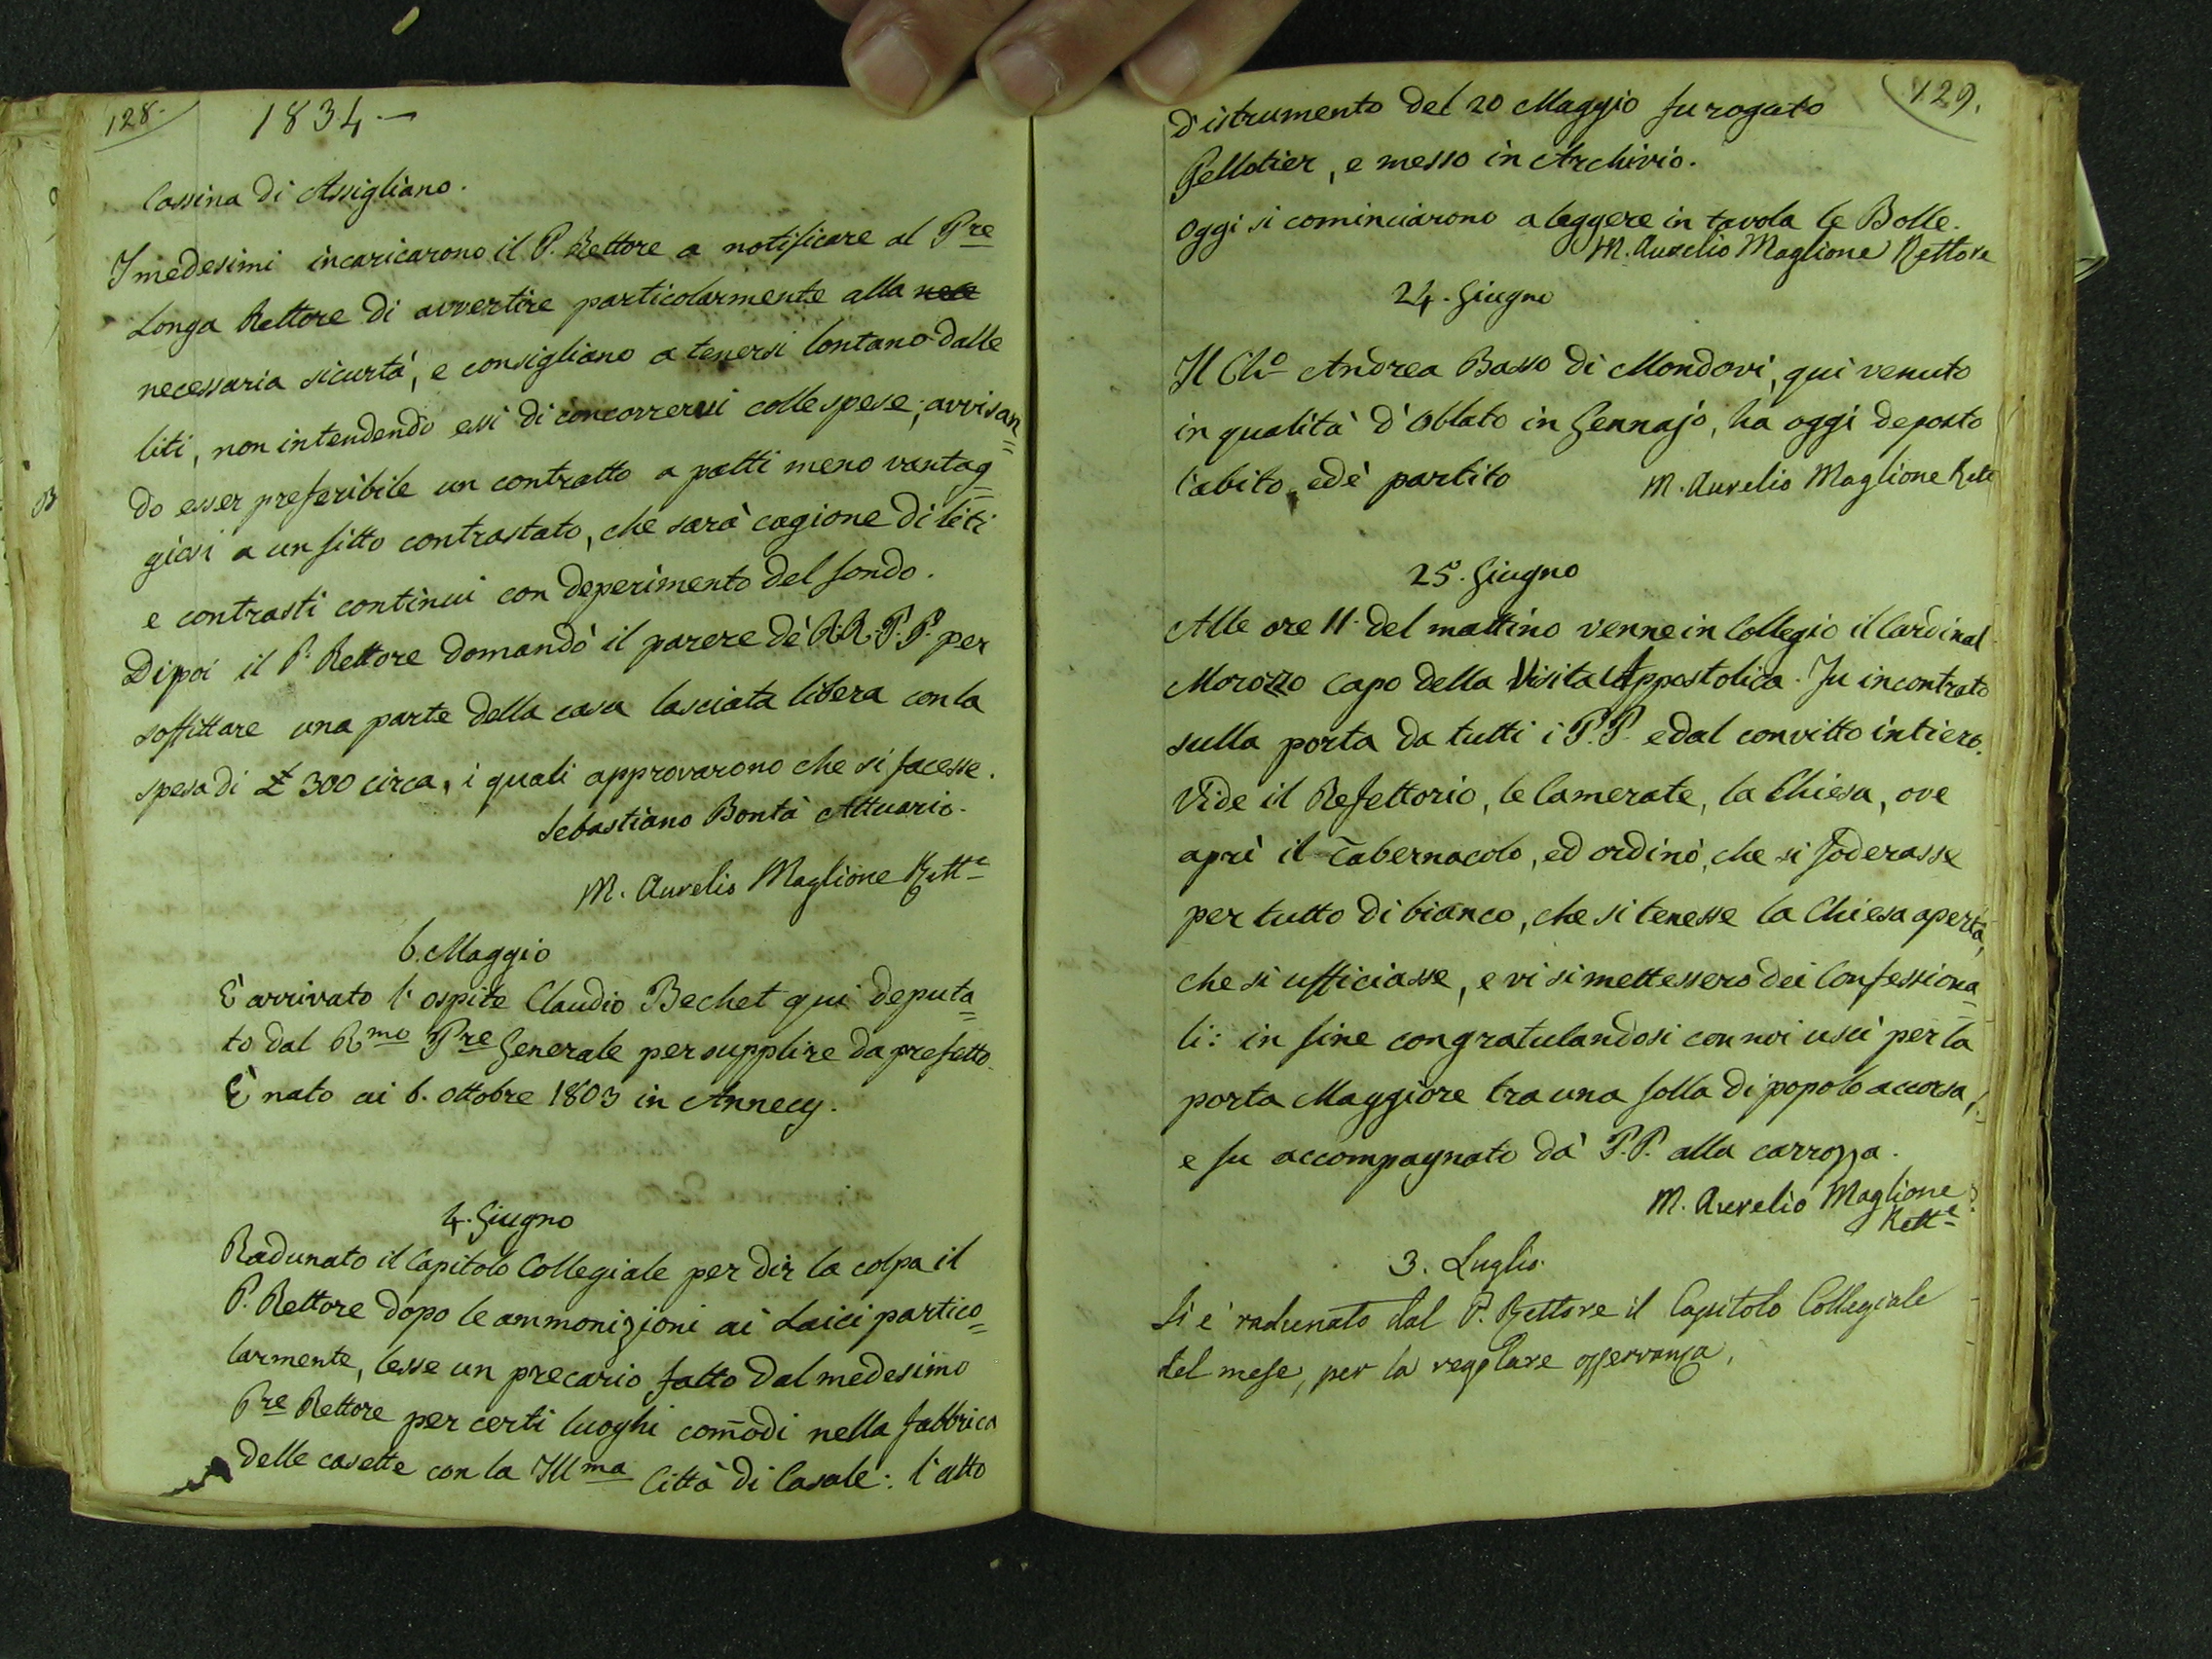 128.
1834.—
Cassina di Assigliano.
I medesimi incaricarono il P. Rettore a notificare al Pre
Longa Rettore di avvertire particolarmente alla nece
necessaria sicurtà, e consigliano a tenersi lontano dalle
liti, non intendendo essi di concorrervi colle spese; avvisan=
do esser preferibile un contratto a patti meno vantag=
giosi a un fitto contrastato, che sarà cagione di liti
e contrasti continui con deperimento del fondo.
Dipoi il P. Rettore domandò il parere de' R.R. P.P. per
soffittare una parte della casa lasciata libera con la
spesa di £ 300 circa, i quali approvarono che si facesse.
Sebastiano Bontà Attuario.
M. Aurelio Maglione Rett.e
6. Maggio
È arrivato l'ospite Claudio Bechet qui deputa=
to dal Rmo Pre Generale per supplire da prefetto.
È nato ai 6. ottobre 1803 in Annecy.
4. Giugno
Radunato il Capitolo Collegiale per dir la colpa il
P. Rettore dopo le ammonizioni ai Laici partico=
larmente, lesse un precario fatto dal medesimo
Pre Rettore per certi luoghi com̄odi nella fabbrica
delle casette con la Illma Città di Casale: l'atto
129.
d'istrumento del 20 Maggio fu rogato
Pellotier, e messo in Archivio.
Oggi si cominciarono a leggere in tavola le Bolle.
M. Aurelio Maglione Rettore
24. Giugno
Il Cho Andrea Basso di Mondovi, qui venuto
in qualità d'oblato in Gennajo, ha oggi deposto
l'abito, ed è partito
M. Aurelio Maglione Rett
25. Giugno
Alle ore 11. del mattino venne in Collegio il Cardinal
Morozzo capo della Visita Appostolica. Fu incontrato
sulla porta da tutti i P.P. e dal convitto intiero.
Vide il Refettorio, le Camerate, la Chiesa, ove
aprì il Tabernacolo, ed ordinò, che si foderasse
per tutto di bianco, che si tenesse la Chiesa aperta,
che si ufficiasse, e vi si mettessero dei Confessiona=
li: in fine congratulandosi con noi uscì per la
porta Maggiore tra una folla di popolo accorsa,
e fu accompagnato da' P.P. alla carrozza.
M. Aurelio Maglione
Rett.e
3. Luglio.
Si è radunato dal P. Rettore il Capitolo Collegiale
del mese, per la regolare osservanza.